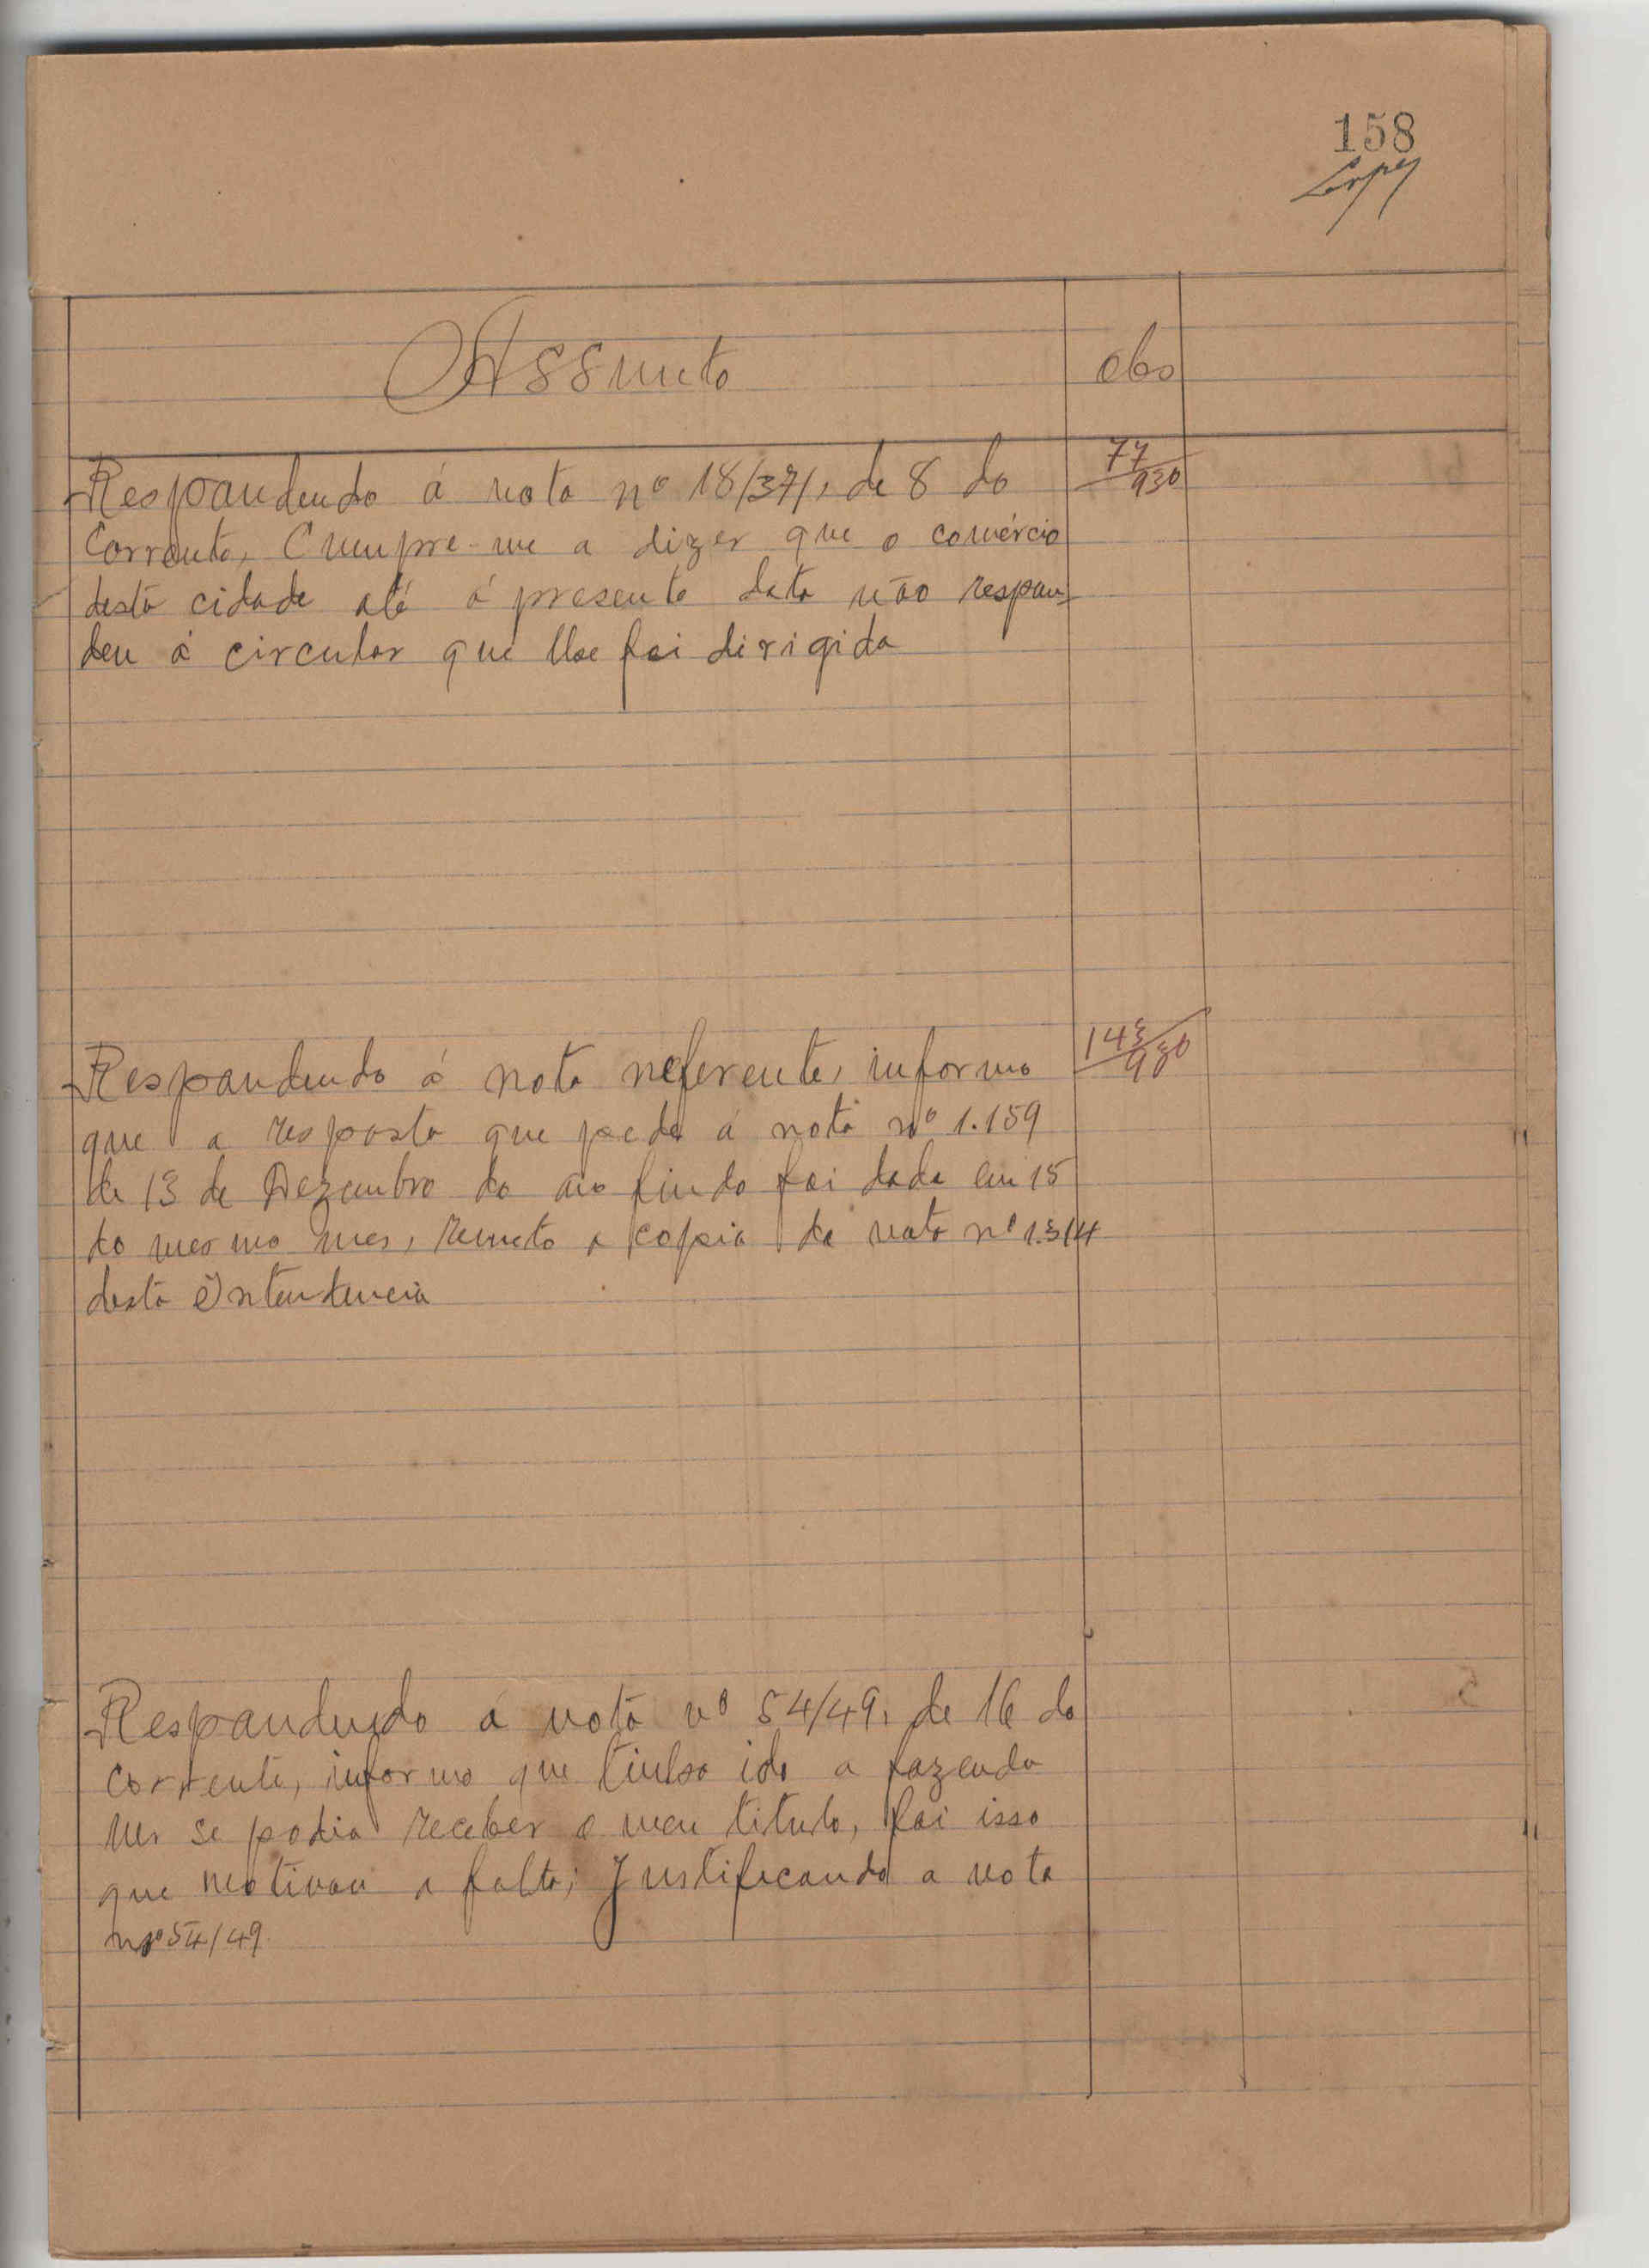 158
Lopes
Assunto
obs
Respondendo á nota nº 18/37/, de 8 do
77/930
Corrente, Cumpre-me a dizer que o comércio
desta cidade até á presente data não respon-
deu á circular que lhe foi dirigida
Respondendo á nota referente, informo
143/930
que a resposta que pede á nota nº 1.159
de 13 de Dezembro do ano findo foi dada em 15
do mesmo mes, remeto a copia da nota nº 1.314
desta Intendencia
Respondendo á nota nº 54/49, de 16 do
corrente, informo que tinha ido a fazenda
ver se podia receber o meu titulo, foi isso
que motivou a falta; Justificando a nota
nº 54/49